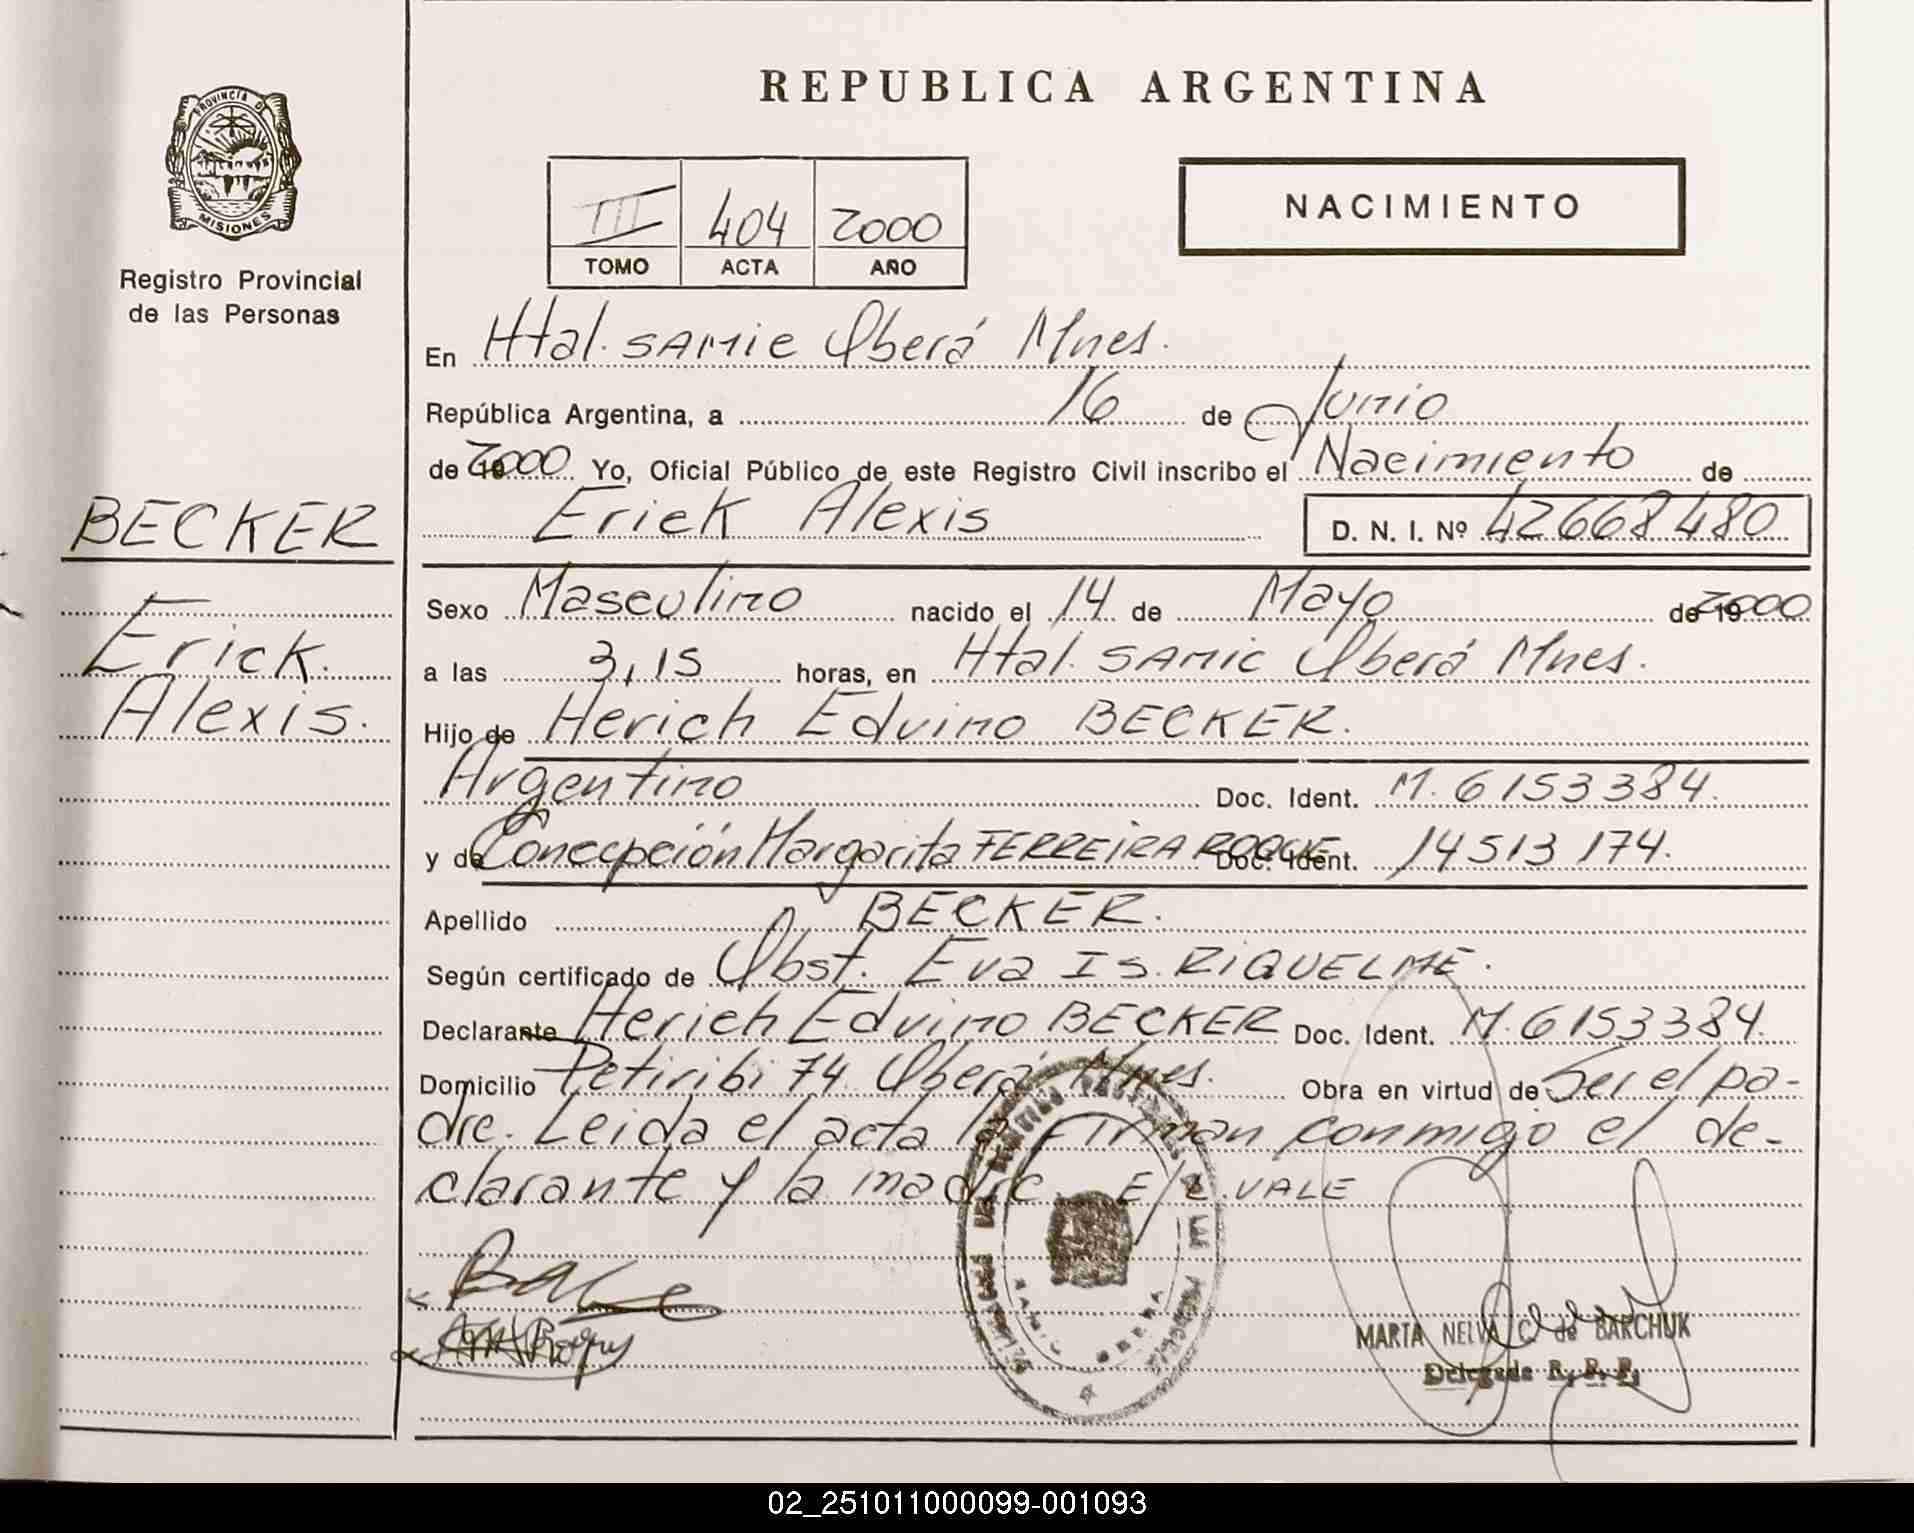 REPUBLICA ARGENTINA
PROVINCIA D
MISIONES
Registro Provincial
de las Personas
III 404 2000
TOMO ACTA AÑO
NACIMIENTO
En Htal. SAMIC Oberá Mnes.
República Argentina, a 16 de Junio
de 2000 Yo, Oficial Público de este Registro Civil inscribo el Nacimiento de
Erick Alexis D. N. I. Nº 42668480
BECKER
Erick
Alexis.
Sexo Masculino nacido el 14 de Mayo de 2000
a las 3,15 horas, en Htal. SAMIC Oberá Mnes.
Hijo de Herich Edvino BECKER.
Argentino Doc. Ident. M. 6153384.
y de Concepción Margarita FERREIRA ROQUE Doc. Ident. 14513174.
Apellido BECKER.
Según certificado de Obst. Eva Is. RIQUELME.
Declarante Herich Edvino BECKER Doc. Ident. M. 6153384.
Domicilio Petiribi 74 Oberá Mnes. Obra en virtud de Ser el pa-
dre. Leida el acta la Firman conmigo el de-
clarante y la madre. E/L. VALE
MARTA NELVA C. de BARCHUK
Delegada R. P. P.
02_251011000099-001093